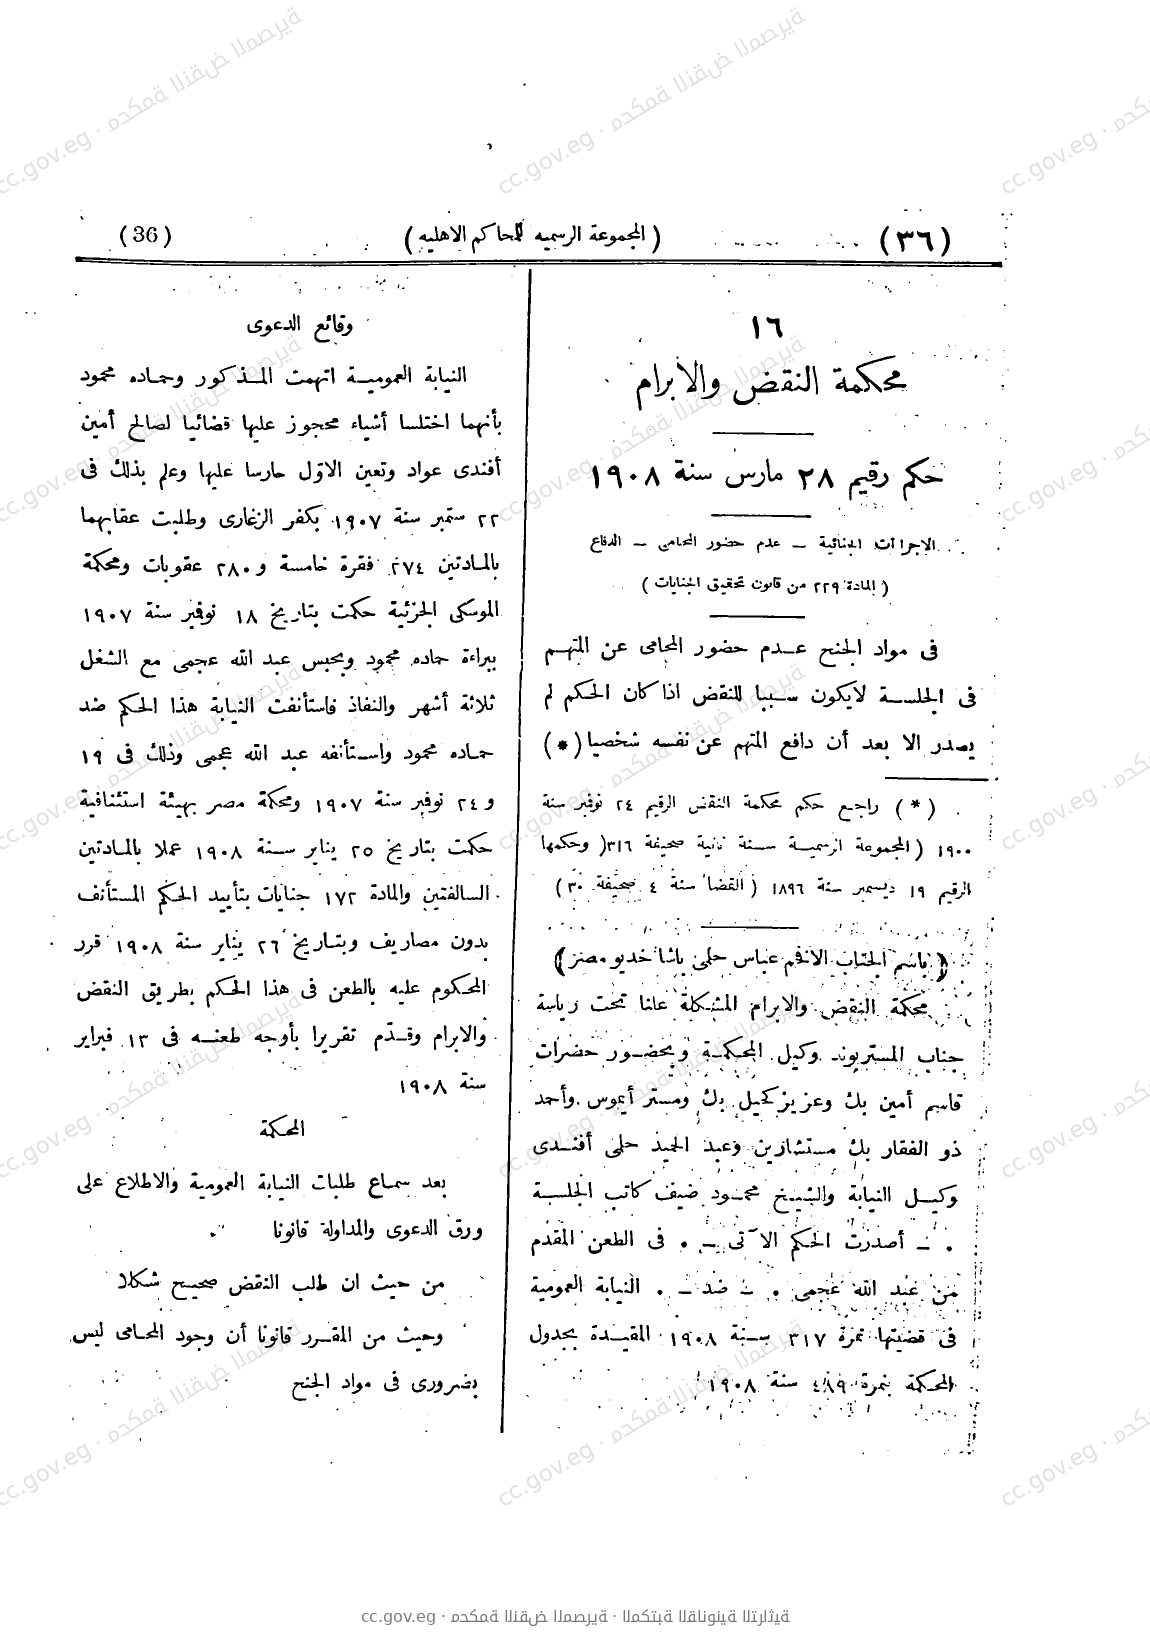 (٣٦)
(المجموعة الرسميه للمحاكم الاهليه)
(36)
١٦
محكمة النقض والابرام
حكم رقيم ٢٨ مارس سنة ١٩٠٨
الاجراآت الجنائية ــ عدم حضور المحامى ــ الدفاع
(المادة ٢٢٩ من قانون تحقيق الجنايات)
فى مواد الجنح عدم حضور المحامى عن المتهم
فى الجلسة لايكون سببا للنقض اذا كان الحكم لم
يصدر الا بعد أن دافع المتهم عن نفسه شخصيا (*)
(*) راجع حكم محكمة النقض الرقيم ٢٤ نوفمبر سنة
١٩٠٠ (المجموعة الرسمية سنة ثانية صحيفة ٣١٦( وحكمها
الرقيم ١٩ ديسمبر سنة ١٨٩٦ (القضا سنة ٤ صحيفة ٣٠)
(باسم الجناب الافخم عباس حلمى باشا خديو مصر)
محكمة النقض والابرام المشكلة علنا تحت رياسة
جناب المستر بوند وكيل المحكمة وبحضور حضرات
قاسم أمين بك وعزيز كحيل بك ومستر أيموس وأحمد
ذو الفقار بك مستشارين وعبد الحميد حلمى أفندى
وكيل النيابة والشيخ محمود ضيف كاتب الجلسة
. ــ أصدرت الحكم الآتى ــ . فى الطعن المقدم
من عبد الله عجمى . ــ ضد ــ . النيابة العمومية
فى قضيتها نمرة ٣١٧ سنة ١٩٠٨ المقيدة بجدول
المحكمة بنمرة ٤٨٩ سنة ١٩٠٨
وقائع الدعوى
النيابة العمومية اتهمت المذكور وحماده محمود
بأنهما اختلسا أشياء محجوز عليها قضائيا لصالح أمين
أفندى عواد وتعين الاوّل حارسا عليها وعلم بذلك فى
٢٢ ستمبر سنة ١٩٠٧ بكفر الزغارى وطلبت عقابهما
بالمادتين ٢٧٤ فقرة خامسة و ٢٨٠ عقوبات ومحكمة
الموسكى الجزئية حكمت بتاريخ ١٨ نوفمبر سنة ١٩٠٧
ببراءة حماده محمود وبحبس عبد الله عجمى مع الشغل
ثلاثة أشهر والنفاذ فاستأنفت النيابة هذا الحكم ضد
حماده محمود واستأنفه عبد الله عجمى وذلك فى ١٩
و ٢٤ نوفمبر سنة ١٩٠٧ ومحكمة مصر بهيئة استئنافية
حكمت بتاريخ ٢٥ يناير سنة ١٩٠٨ عملا بالمادتين
السالفتين والمادة ١٧٢ جنايات بتأييد الحكم المستأنف
بدون مصاريف وبتاريخ ٢٦ يناير سنة ١٩٠٨ قرر
المحكوم عليه بالطعن فى هذا الحكم بطريق النقض
والابرام وقدّم تقريرا بأوجه طعنه فى ١٣ فبراير
سنة ١٩٠٨
المحكمة
بعد سماع طلبات النيابة العمومية والاطلاع على
ورق الدعوى والمداولة قانونا .
من حيث ان طلب النقض صحيح شكلا
وحيث من المقرر قانونا أن وجود المحامى ليس
بضرورى فى مواد الجنح
cc.gov.eg · محكمة النقض المصرية · المكتبة القانونية التراثية